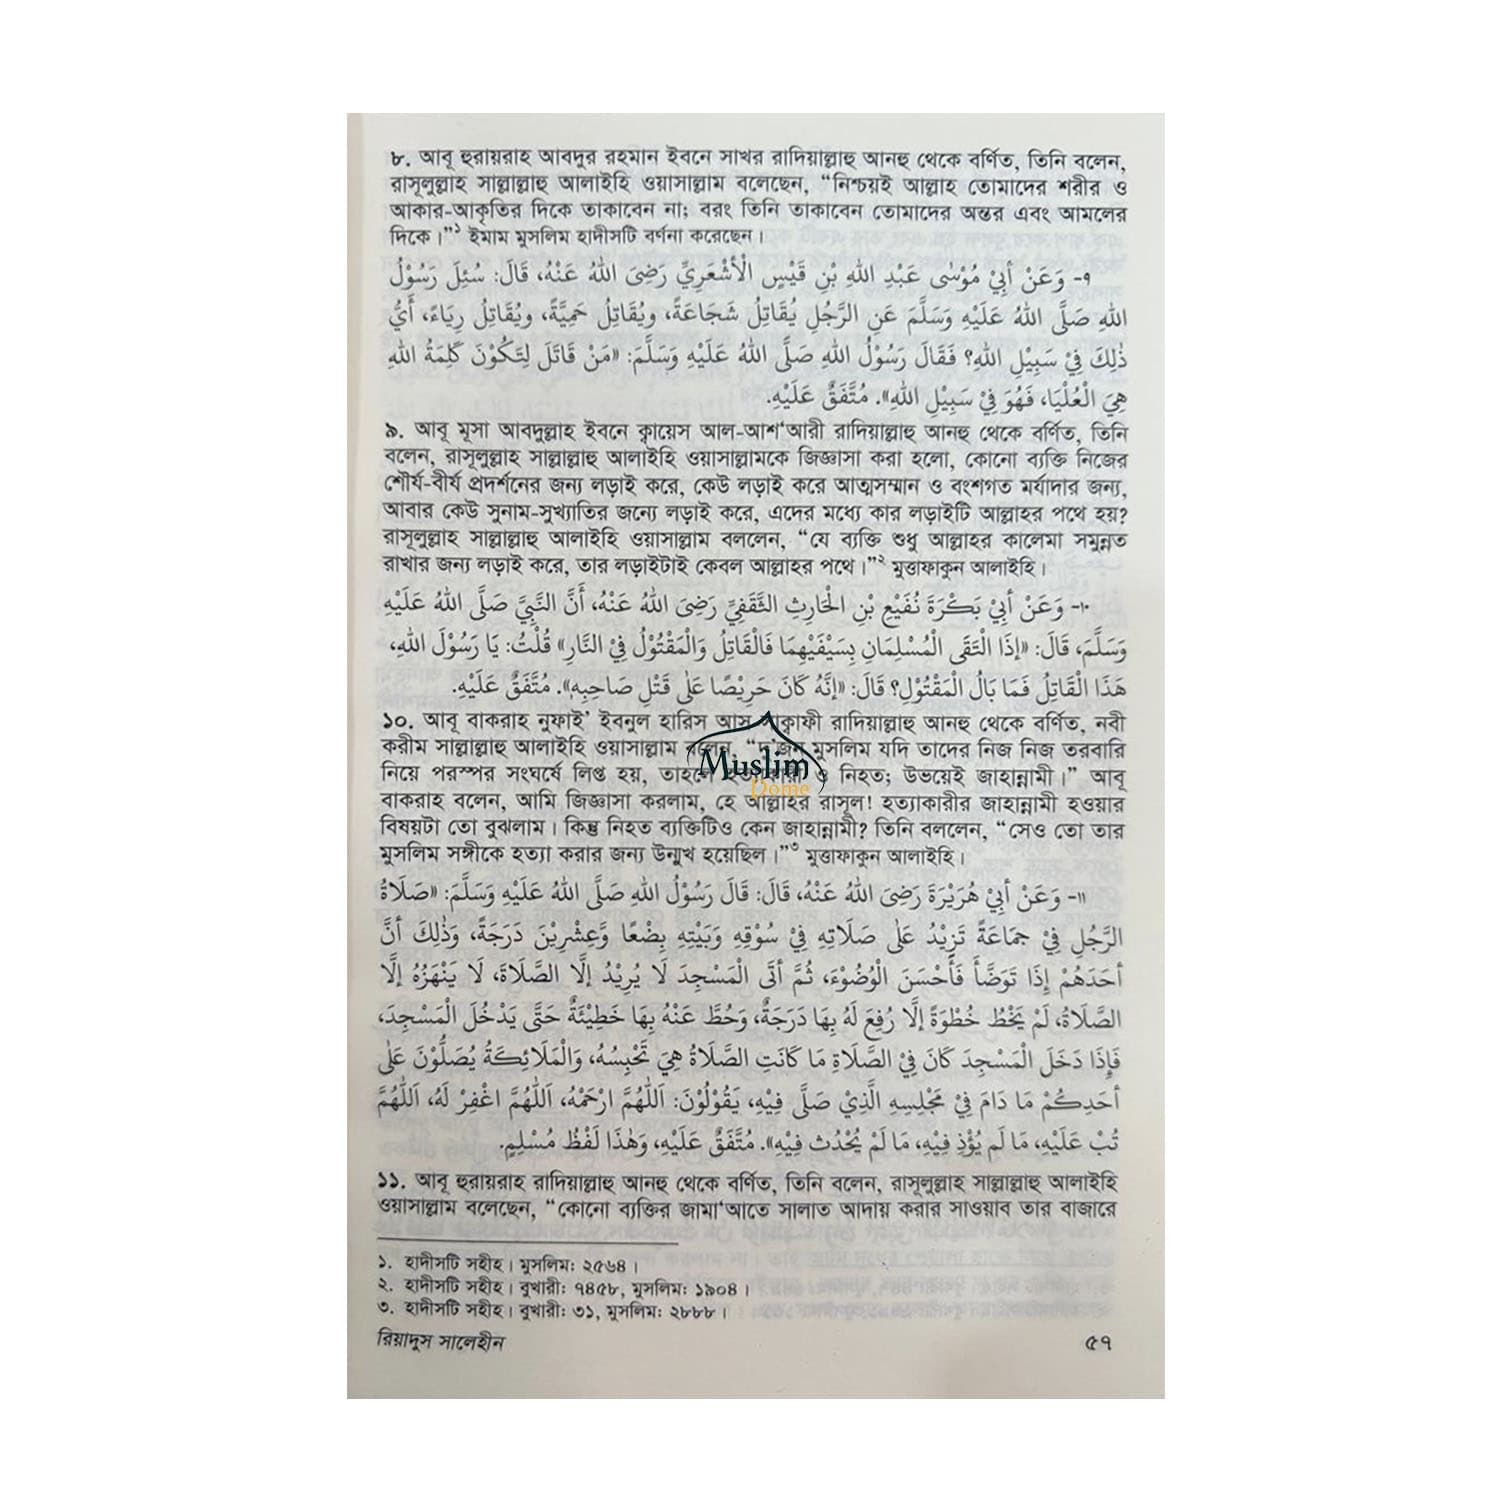 ৮. আবূ হুরায়রাহ আবদুর রহমান ইবনে সাখর রাদিয়াল্লাহু আনহু থেকে বর্ণিত, তিনি বলেন,
রাসূলুল্লাহ সাল্লাল্লাহু আলাইহি ওয়াসাল্লাম বলেছেন, “নিশ্চয়ই আল্লাহ তোমাদের শরীর ও
আকার-আকৃতির দিকে তাকাবেন না; বরং তিনি তাকাবেন তোমাদের অন্তর এবং আমলের
দিকে।”১ ইমাম মুসলিম হাদীসটি বর্ণনা করেছেন।
٩- وَعَنْ أَبِيْ مُوْسٰى عَبْدِ اللهِ بْنِ قَيْسٍ الْأَشْعَرِيِّ رَضِىَ اللهُ عَنْهُ، قَالَ: سُئِلَ رَسُوْلُ
اللهِ صَلَّى اللهُ عَلَيْهِ وَسَلَّمَ عَنِ الرَّجُلِ يُقَاتِلُ شَجَاعَةً، ويُقَاتِلُ حَمِيَّةً، ويُقَاتِلُ رِيَاءً، أَيُّ
ذٰلِكَ فِيْ سَبِيْلِ اللهِ؟ فَقَالَ رَسُوْلُ اللهِ صَلَّى اللهُ عَلَيْهِ وَسَلَّمَ: «مَنْ قَاتَلَ لِتَكُوْنَ كَلِمَةُ اللهِ
هِيَ الْعُلْيَا، فَهُوَ فِيْ سَبِيْلِ اللهِ». مُتَّفَقٌ عَلَيْهِ.
৯. আবূ মূসা আবদুল্লাহ ইবনে ক্বায়েস আল-আশ‘আরী রাদিয়াল্লাহু আনহু থেকে বর্ণিত, তিনি
বলেন, রাসূলুল্লাহ সাল্লাল্লাহু আলাইহি ওয়াসাল্লামকে জিজ্ঞাসা করা হলো, কোনো ব্যক্তি নিজের
শৌর্য-বীর্য প্রদর্শনের জন্য লড়াই করে, কেউ লড়াই করে আত্মসম্মান ও বংশগত মর্যাদার জন্য,
আবার কেউ সুনাম-সুখ্যাতির জন্যে লড়াই করে, এদের মধ্যে কার লড়াইটি আল্লাহর পথে হয়?
রাসূলুল্লাহ সাল্লাল্লাহু আলাইহি ওয়াসাল্লাম বললেন, “যে ব্যক্তি শুধু আল্লাহর কালেমা সমুন্নত
রাখার জন্য লড়াই করে, তার লড়াইটাই কেবল আল্লাহর পথে।”২ মুত্তাফাকুন আলাইহি।
١٠- وَعَنْ أَبِيْ بَكْرَةَ نُفَيْعِ بْنِ الْحَارِثِ الثَّقَفِيِّ رَضِىَ اللهُ عَنْهُ، أَنَّ النَّبِيَّ صَلَّى اللهُ عَلَيْهِ
وَسَلَّمَ، قَالَ: «إِذَا الْتَقَى الْمُسْلِمَانِ بِسَيْفَيْهِمَا فَالْقَاتِلُ وَالْمَقْتُوْلُ فِيْ النَّارِ» قُلْتُ: يَا رَسُوْلَ اللهِ،
هَذَا الْقَاتِلُ فَمَا بَالُ الْمَقْتُوْلِ؟ قَالَ: «إِنَّهُ كَانَ حَرِيْصًا عَلٰى قَتْلِ صَاحِبِهٖ». مُتَّفَقٌ عَلَيْهِ.
১০. আবূ বাকরাহ নুফাই’ ইবনুল হারিস আস সাক্বাফী রাদিয়াল্লাহু আনহু থেকে বর্ণিত, নবী
করীম সাল্লাল্লাহু আলাইহি ওয়াসাল্লাম বলেন, “দু’জন মুসলিম যদি তাদের নিজ নিজ তরবারি
নিয়ে পরস্পর সংঘর্ষে লিপ্ত হয়, তাহলে হত্যাকারী ও নিহত; উভয়েই জাহান্নামী।” আবূ
বাকরাহ বলেন, আমি জিজ্ঞাসা করলাম, হে আল্লাহর রাসূল! হত্যাকারীর জাহান্নামী হওয়ার
বিষয়টা তো বুঝলাম। কিন্তু নিহত ব্যক্তিটিও কেন জাহান্নামী? তিনি বললেন, “সেও তো তার
মুসলিম সঙ্গীকে হত্যা করার জন্য উন্মুখ হয়েছিল।”৩ মুত্তাফাকুন আলাইহি।
Muslim
Dome
١١- وَعَنْ أَبِيْ هُرَيْرَةَ رَضِىَ اللهُ عَنْهُ، قَالَ: قَالَ رَسُوْلُ اللهِ صَلَّى اللهُ عَلَيْهِ وَسَلَّمَ: «صَلَاةُ
الرَّجُلِ فِيْ جَمَاعَةً تَزِيْدُ عَلٰى صَلَاتِهِ فِيْ سُوْقِهِ وَبَيْتِهِ بِضْعًا وَّعِشْرِيْنَ دَرَجَةً، وَذٰلِكَ أَنَّ
أَحَدَهُمْ إِذَا تَوَضَّأَ فَأَحْسَنَ الْوُضُوْءَ، ثُمَّ أَتَى الْمَسْجِدَ لَا يُرِيْدُ إِلَّا الصَّلَاةَ، لَا يَنْهَزُهُ إِلَّا
الصَّلَاةُ، لَمْ يَخْطُ خُطْوَةً إِلَّا رُفِعَ لَهُ بِهَا دَرَجَةٌ، وَحُطَّ عَنْهُ بِهَا خَطِيْئَةٌ حَتَّى يَدْخُلَ الْمَسْجِدَ،
فَإِذَا دَخَلَ الْمَسْجِدَ كَانَ فِيْ الصَّلَاةِ مَا كَانَتِ الصَّلَاةُ هِيَ تَحْبِسُهُ، وَالْمَلَائِكَةُ يُصَلُّوْنَ عَلٰى
أَحَدِكُمْ مَا دَامَ فِيْ مَجْلِسِهِ الَّذِيْ صَلَّى فِيْهِ، يَقُوْلُوْنَ: اَللّٰهُمَّ ارْحَمْهُ، اَللّٰهُمَّ اغْفِرْ لَهُ، اَللّٰهُمَّ
تُبْ عَلَيْهِ، مَا لَم يُؤْذِ فِيْهِ، مَا لَمْ يُحْدُث فِيْهِ». مُتَّفَقٌ عَلَيْهِ، وَهٰذَا لَفْظُ مُسْلِمٍ.
১১. আবূ হুরায়রাহ রাদিয়াল্লাহু আনহু থেকে বর্ণিত, তিনি বলেন, রাসূলুল্লাহ সাল্লাল্লাহু আলাইহি
ওয়াসাল্লাম বলেছেন, “কোনো ব্যক্তির জামা‘আতে সালাত আদায় করার সাওয়াব তার বাজারে
১. হাদীসটি সহীহ। মুসলিম: ২৫৬৪।
২. হাদীসটি সহীহ। বুখারী: ৭৪৫৮, মুসলিম: ১৯০৪।
৩. হাদীসটি সহীহ। বুখারী: ৩১, মুসলিম: ২৮৮৮।
রিয়াদুস সালেহীন ৫৭